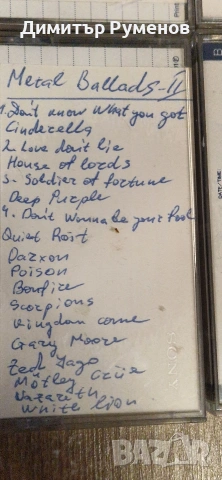 Димитър Руменов
Metal Ballads-II
1. Don't know What you got
Cinderella
2. Love don't lie
House of lords
3- Soldier of fortune
Deep Purple
4. Don't Wanna be your fool
Quiet Roist
Darxon
Poison
Bonfire
Scorpions
Kingdom come
Gary Moore
Zed Yago
Mötley Crüe
Nazareth
White lion
SONY
bazar
БГ